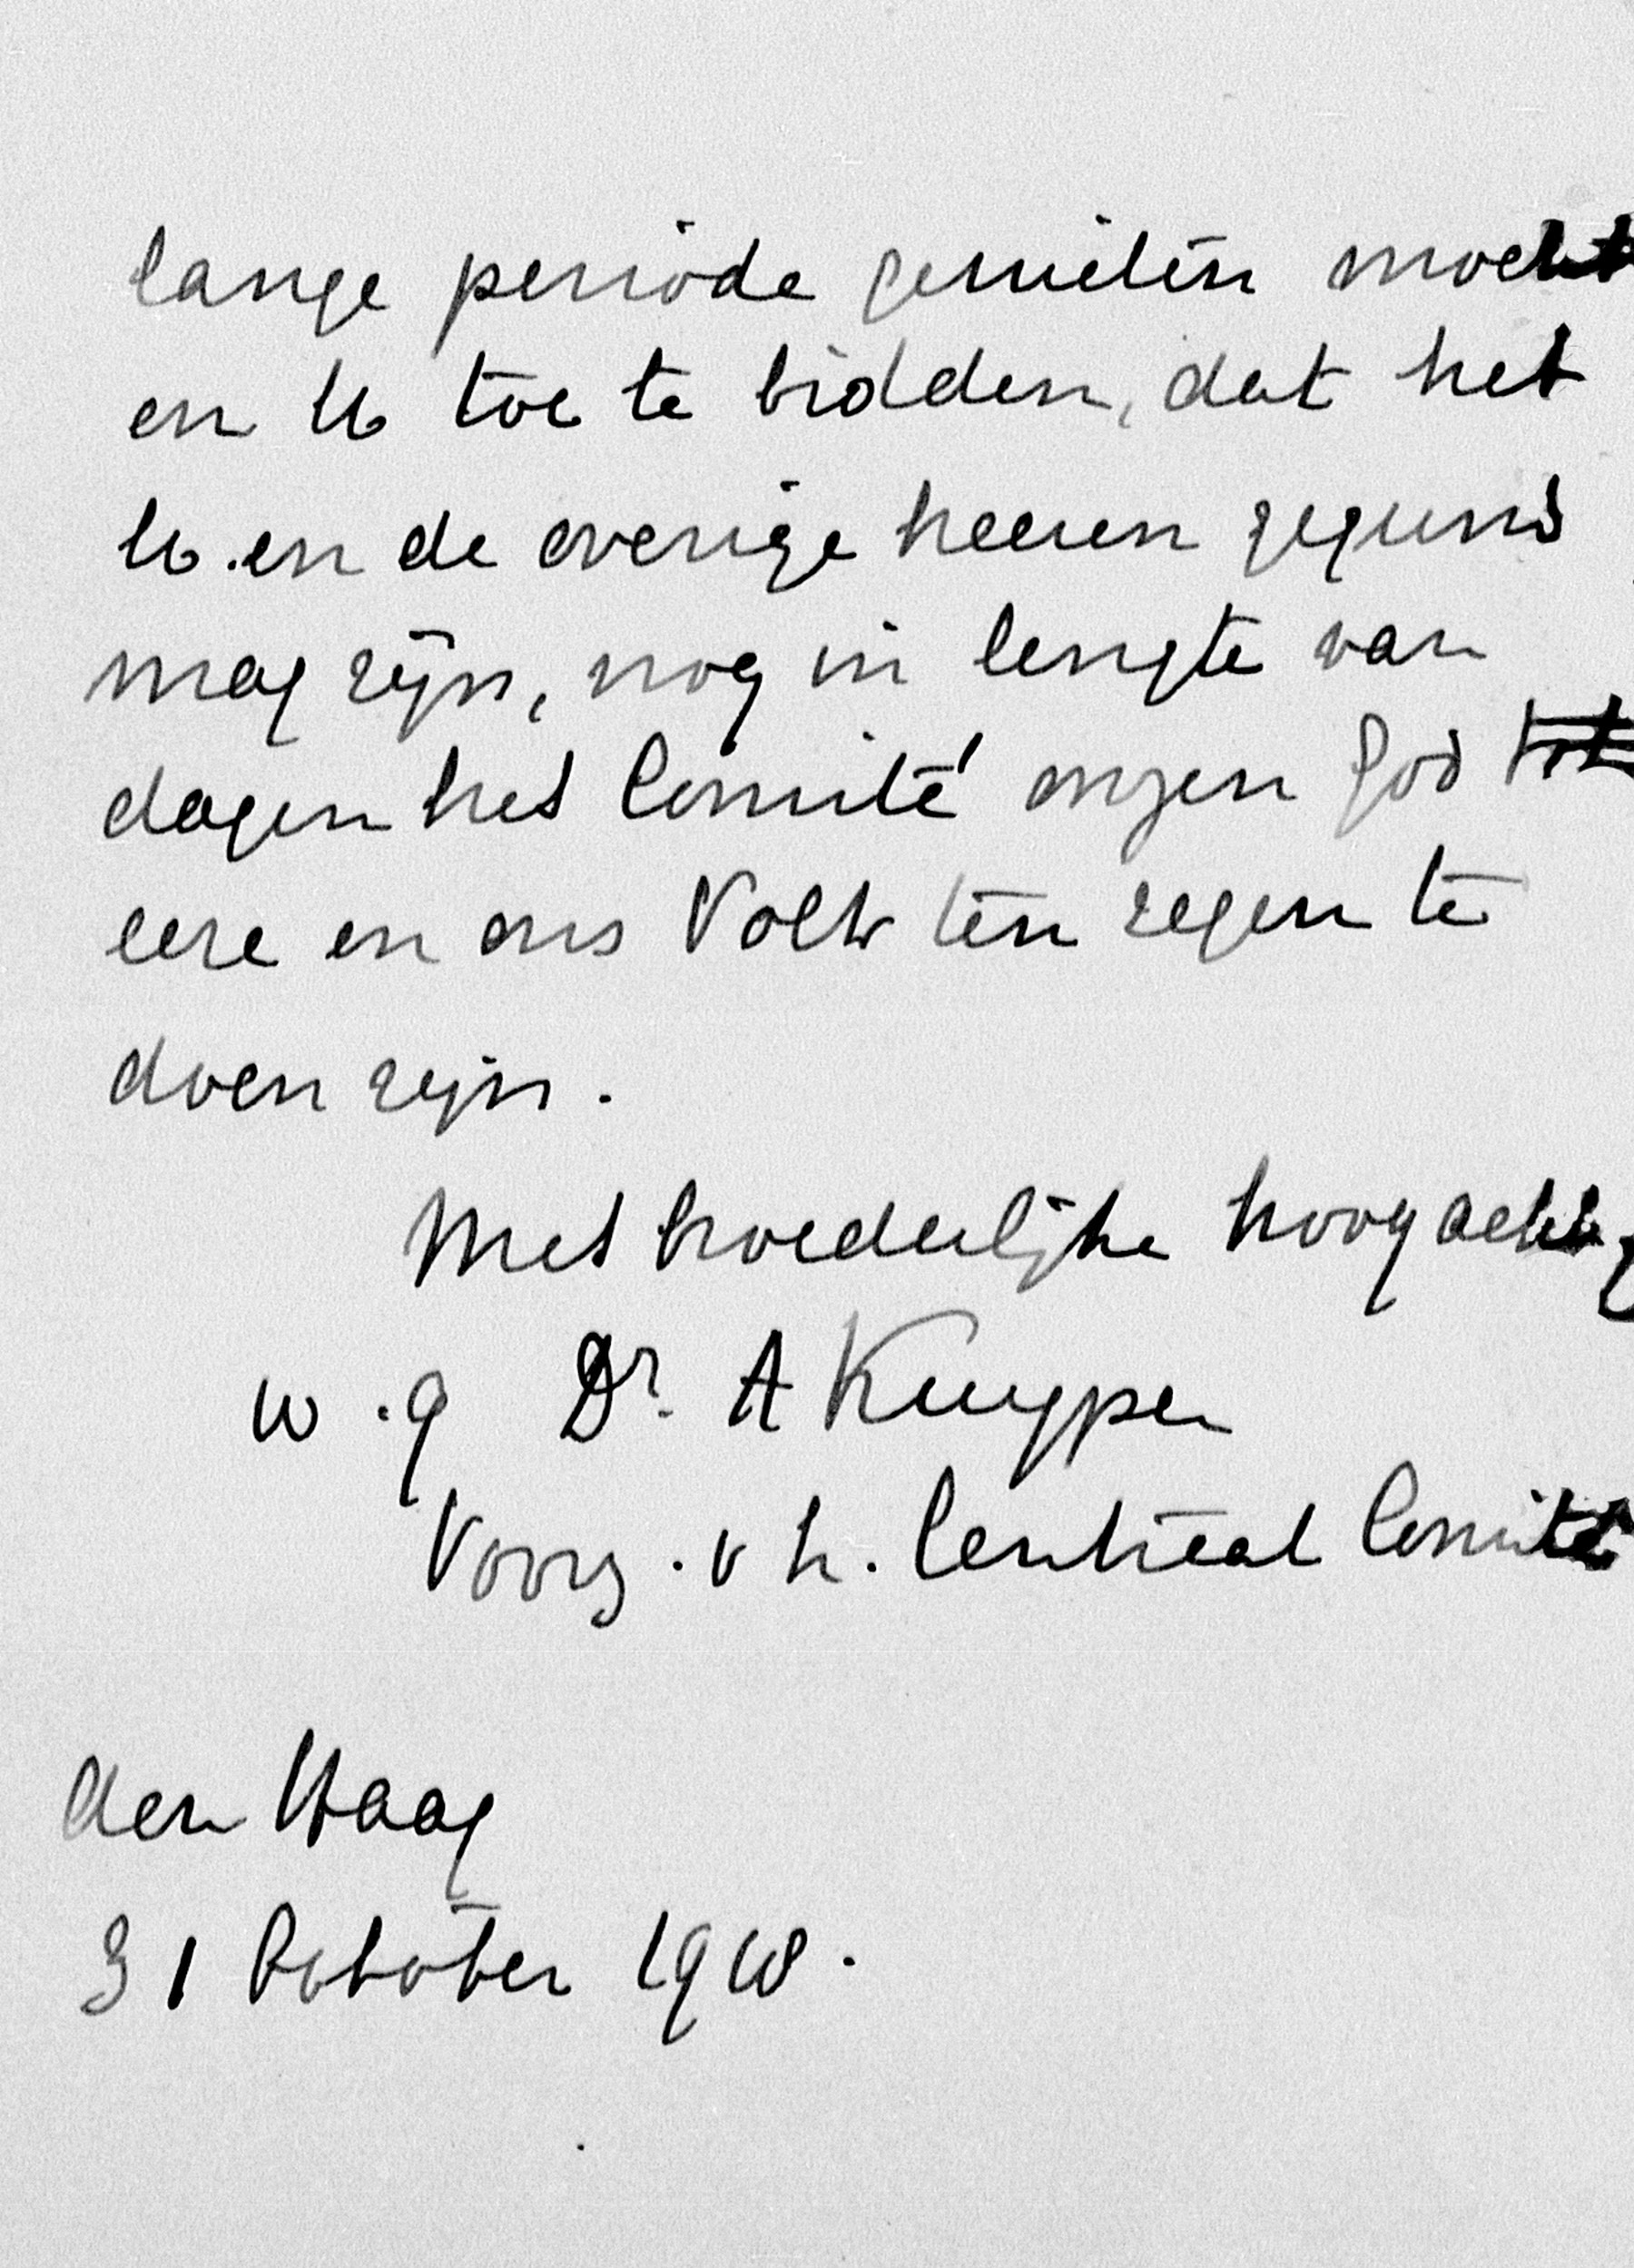 lange periode genieten mocht
en U toe te bidden, dat het
U en de overige heeren gegund
mag zijn, nog in lengte van
dagen het Comité onzen God tot
eere en ons Volk ten zegen te
doen zijn.
Met broederlijke hoogachtg
w.g Dr. A Kuyper
Voorz. v h. Centraal Comité
den Haag
31 October 1918.